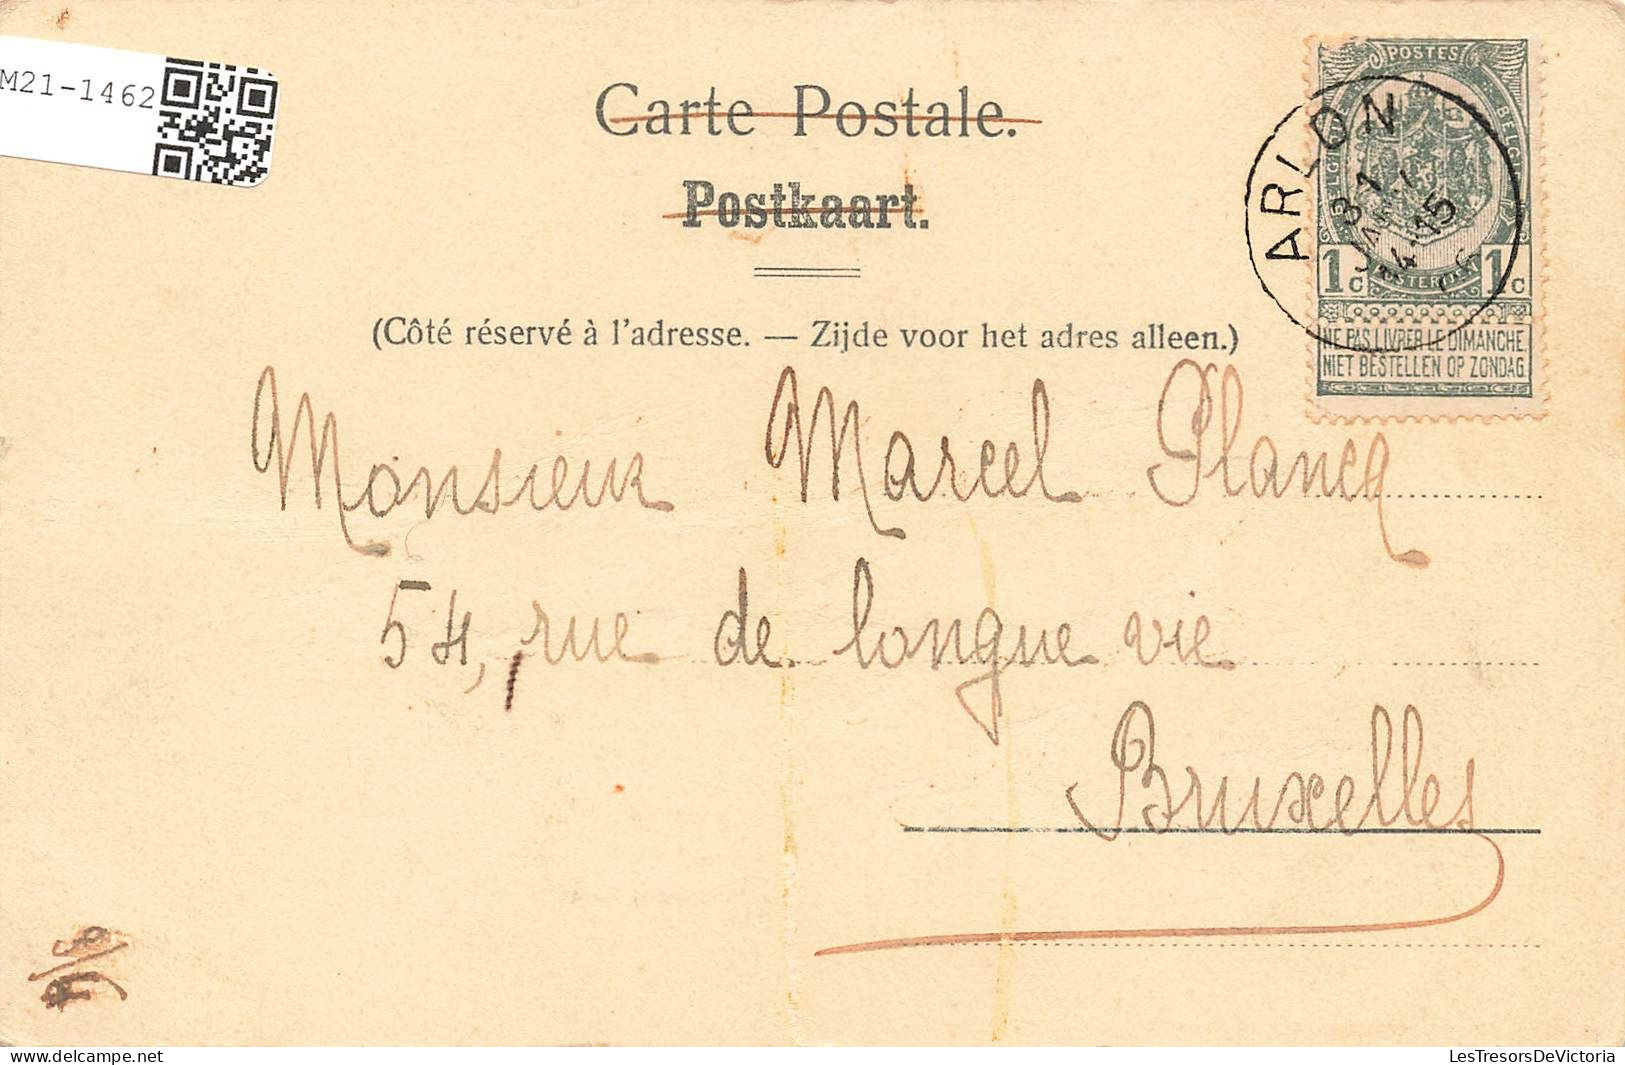 M21-1462
Carte Postale.
Postkaart.
(Côté réservé à l'adresse. — Zijde voor het adres alleen.)
POSTES
BELGIQUE
BELGIË
1c 1c
NE PAS LIVRER LE DIMANCHE
NIET BESTELLEN OP ZONDAG
ARLON
31
JANV
15
06
Monsieur Marcel Plancq
54, rue de longue vie
Bruxelles
LesTresorsDeVictoria
delcampe.net